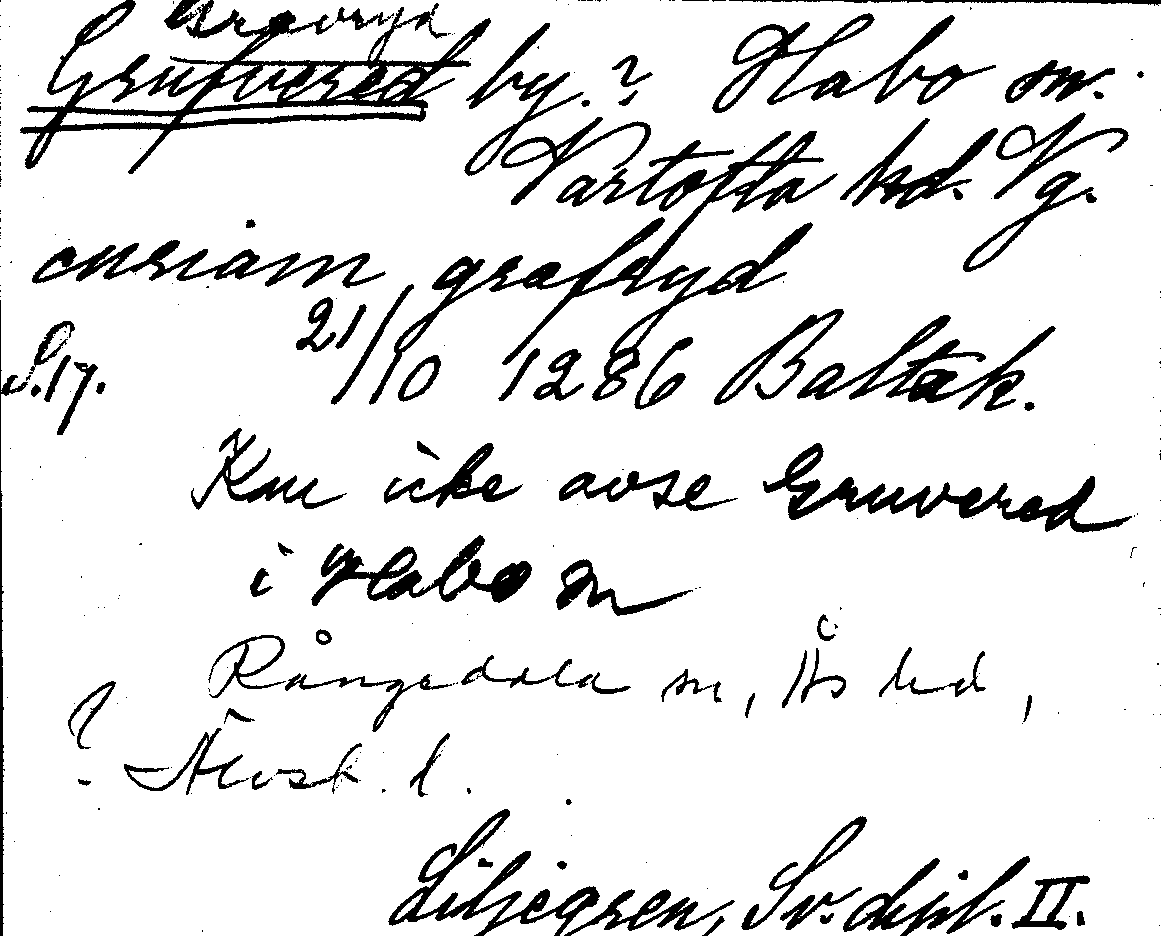 Gravryd
Grufvered by.? Habo sn.
Vartofta hd. Vg.
curiam grafryd
S.17. 21/10 1286 Baltak.
Kan icke avse Gruvered
i Habo sn
Rångedala sn, Ås hd,
? Älvsb. l.
Liljegren, Sv. dipl. II.